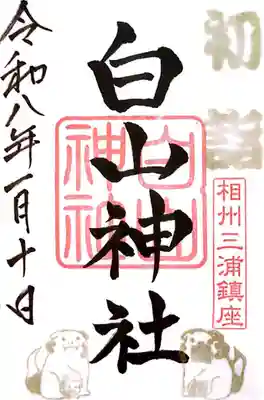 初詣
相州三浦鎮座
白山神社
白山神社
令和八年一月十日